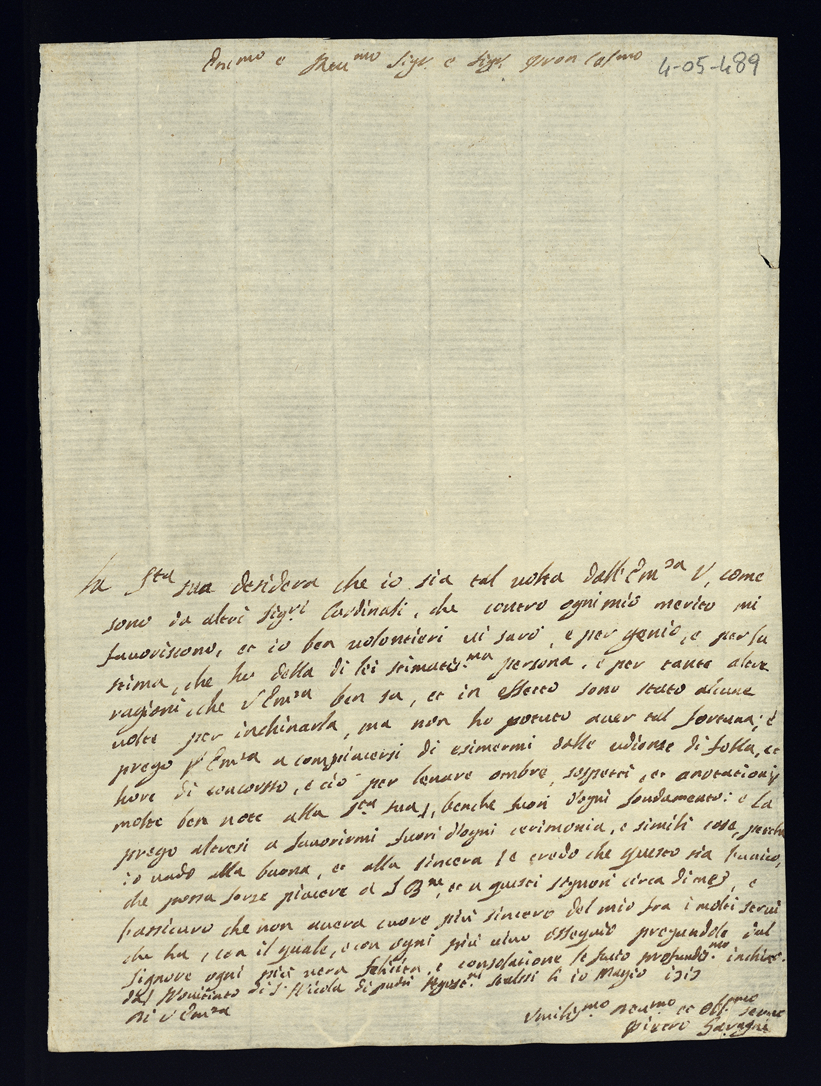 Em.mo e Reu.mo Sigr. e Sigr. Pron Col.mo 4-05-489
La S.ta sua desidera che io sia tal uolta dall'Em.za V, come
sono da altri Sig.ri Cardinali, che contro ogni mio merito mi
fauoriscono, et io ben uolontieri ui sarò, e per genio, e per la
stima, che ho della di lei stimatis.ma persona, e per tante altre
ragioni, che V Em.za ben sa, et in effetto sono stato alcune
uolte per inchinarla, ma non ho potuto auer tal fortuna; e
prego V Em.za a compiacersi di esimermi dalle udienze di folla, et
hore di concorso, e ciò per leuare ombre, sospetti, et
molto ben note alla S.ta sua, benche fuori d'ogni fondamento: e La
prego altresi a fauorirmi fuori d'ogni cerimonia, e simili cose, perche
io uado alla buona, et alla sincera e credo che questo sia l'unico,
che possa forse piacere a S B.ne, et a questi signori circa di me, e
l'assicuro che non auera cuore più sincero del mio fra i molti serui
che ha, con il quale, e con ogni più uiuo ossequio pregandole dal
Signore ogni più uera felicità, e consolatione le faccio profundis.mo inchino.
dal Nouiziato di S Nicola di padri Agost.ni Scalsi li 10 Magio
Di V Em.za
Vmilis.mo Deu.mo et Obl.mo Serue